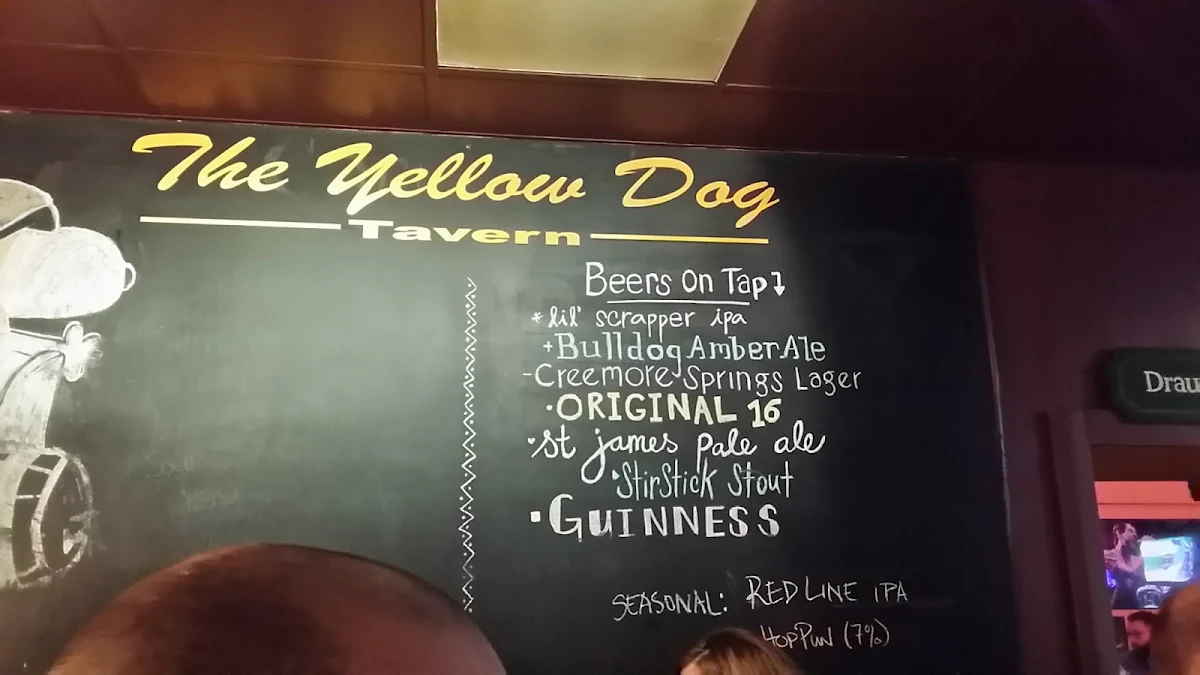 The Yellow Dog
Tavern
Beers On Tap
* lil' scrapper ipa
+Bulldog Amber Ale
-Creemore Springs Lager
·ORIGINAL 16
·st james pale ale
·StirStick Stout
·GUINNESS
SEASONAL: RED LINE IPA
HOPPUN (7%)
Drau